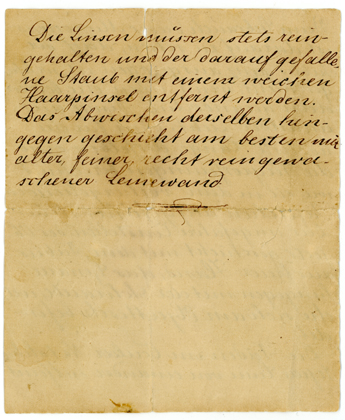 Die Linsen müssen stets rein-
gehalten und der darauf gefalle-
ne Staub mit einem weichen
Haarpinsel entfernt werden.
Das Abwischen derselben hin-
gegen geschieht am besten mit
alter, feiner, recht reingewa-
schener Leinewand